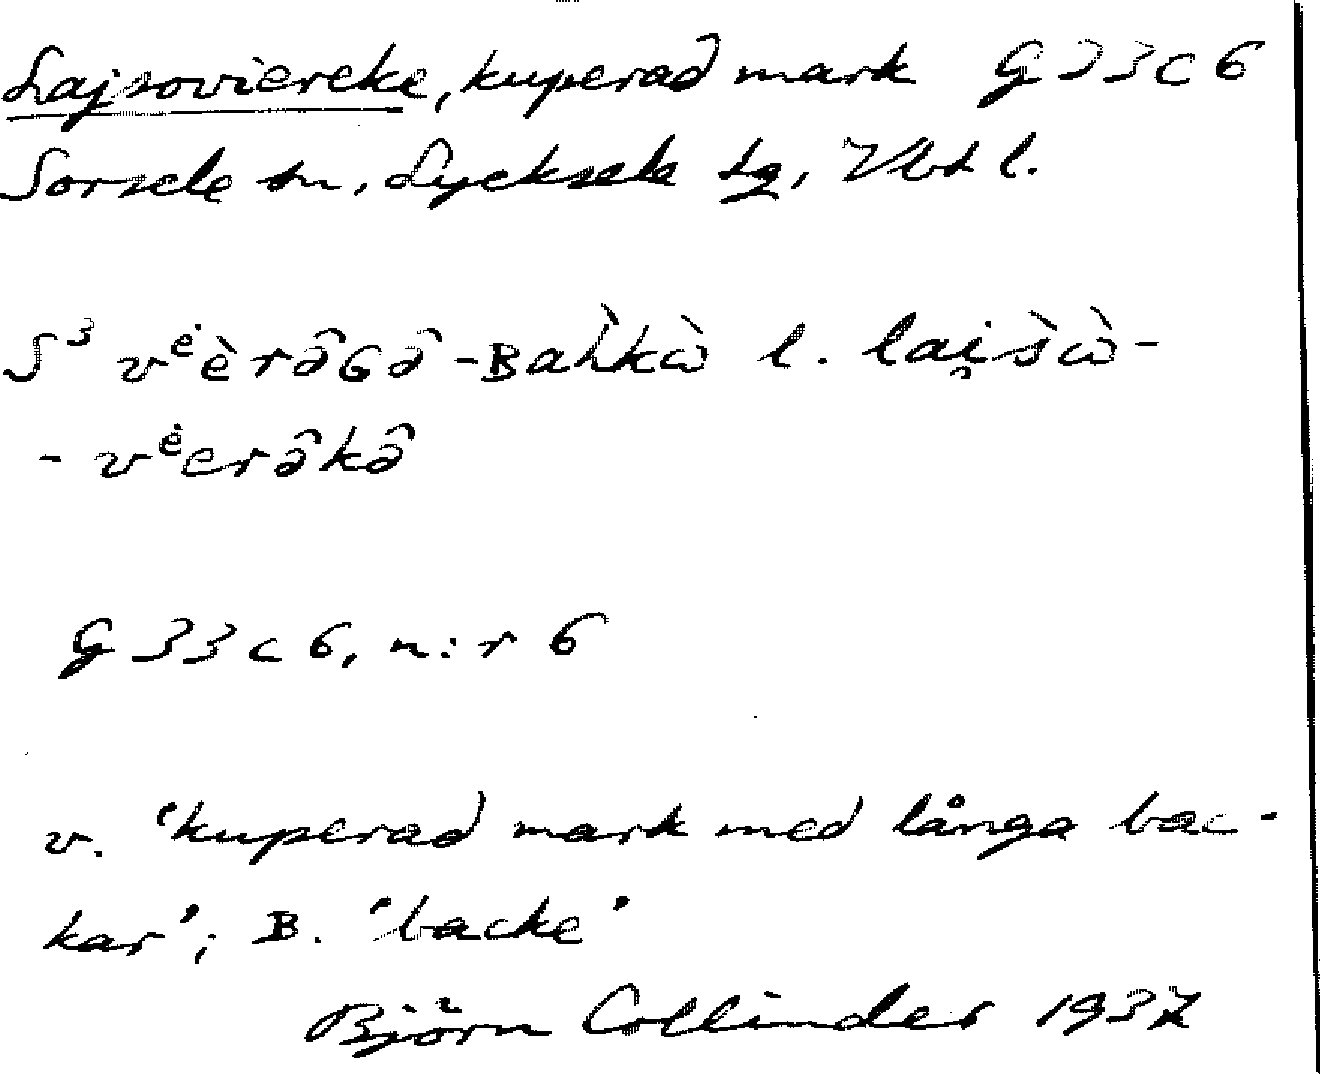 Lajsoviereke, kuperad mark G 33 c 6
Sorsele sn, Lycksele lg, Vbtl.
S³ vᵉ̇èrə̂Gə̂-Baʜ̀kὼ l. lai̯s̀ὼ-
- vᵉ̇erə̂kə̂
G 33 c 6, n:r 6
v. 'kuperad mark med långa bac-
kar'; B. 'backe'
Björn Collinder 1937